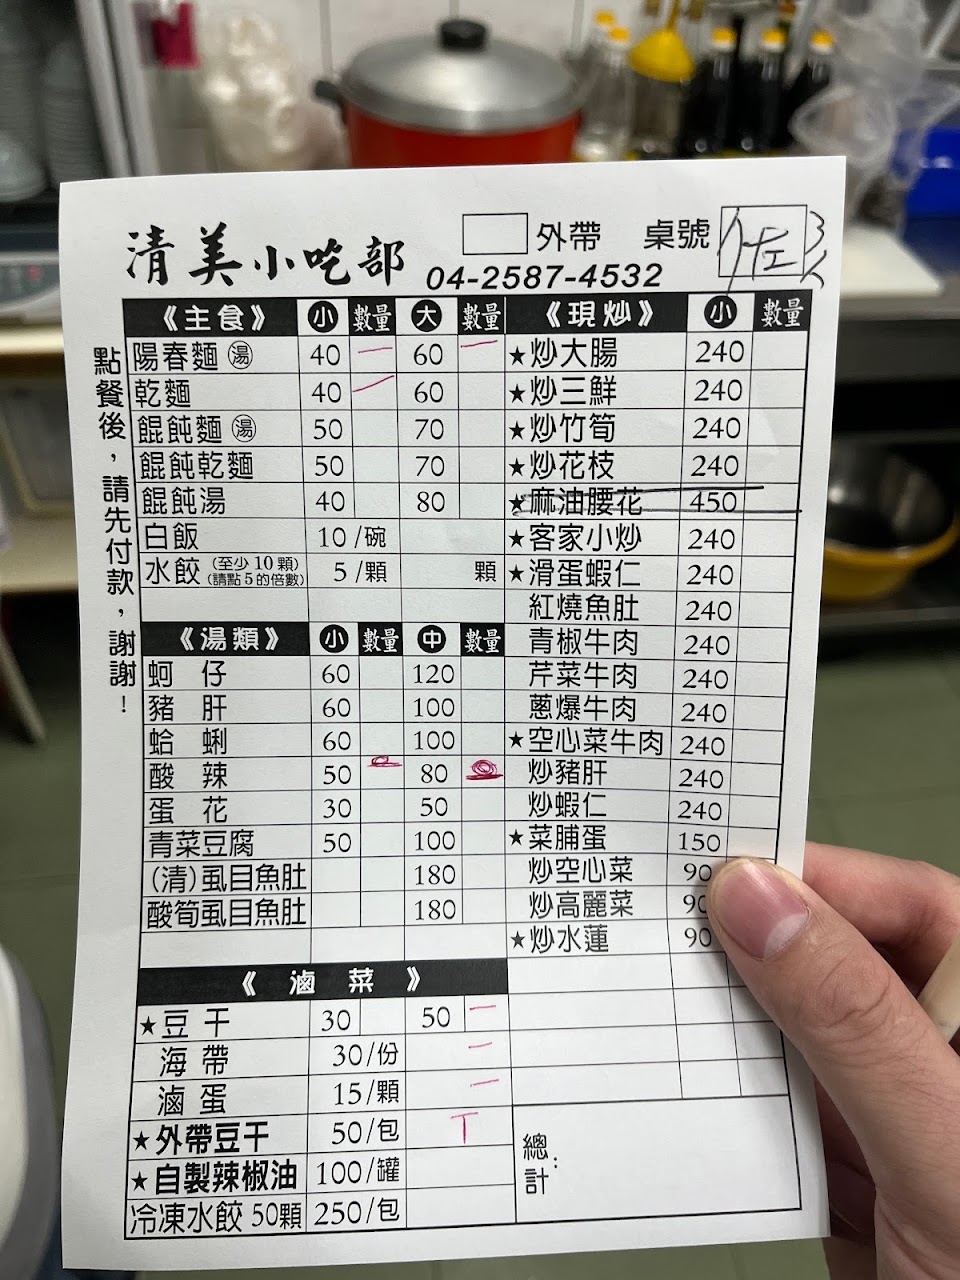 清美小吃部
外帶 桌號 左 3人
04-2587-4532
點餐後，請先付款，謝謝！
《主食》 小 數量 大 數量
陽春麵 湯 40 一 60 一
乾麵 40 一 60
餛飩麵 湯 50 70
餛飩乾麵 50 70
餛飩湯 40 80
白飯 10/碗
水餃 (至少10顆) (請點5的倍數) 5/顆 顆
《湯類》 小 數量 中 數量
蚵仔 60 120
豬肝 60 100
蛤蜊 60 100
酸辣 50 80
蛋花 30 50
青菜豆腐 50 100
(清)虱目魚肚 180
酸筍虱目魚肚 180
《滷菜》
★豆干 30 50 一
海帶 30/份 一
滷蛋 15/顆 一
★外帶豆干 50/包 T
★自製辣椒油 100/罐
冷凍水餃50顆 250/包
《現炒》 小 數量
★炒大腸 240
★炒三鮮 240
★炒竹筍 240
★炒花枝 240
★麻油腰花 450
★客家小炒 240
★滑蛋蝦仁 240
紅燒魚肚 240
青椒牛肉 240
芹菜牛肉 240
蔥爆牛肉 240
★空心菜牛肉 240
炒豬肝 240
炒蝦仁 240
★菜脯蛋 150
炒空心菜 90
炒高麗菜 90
★炒水蓮 90
總計: